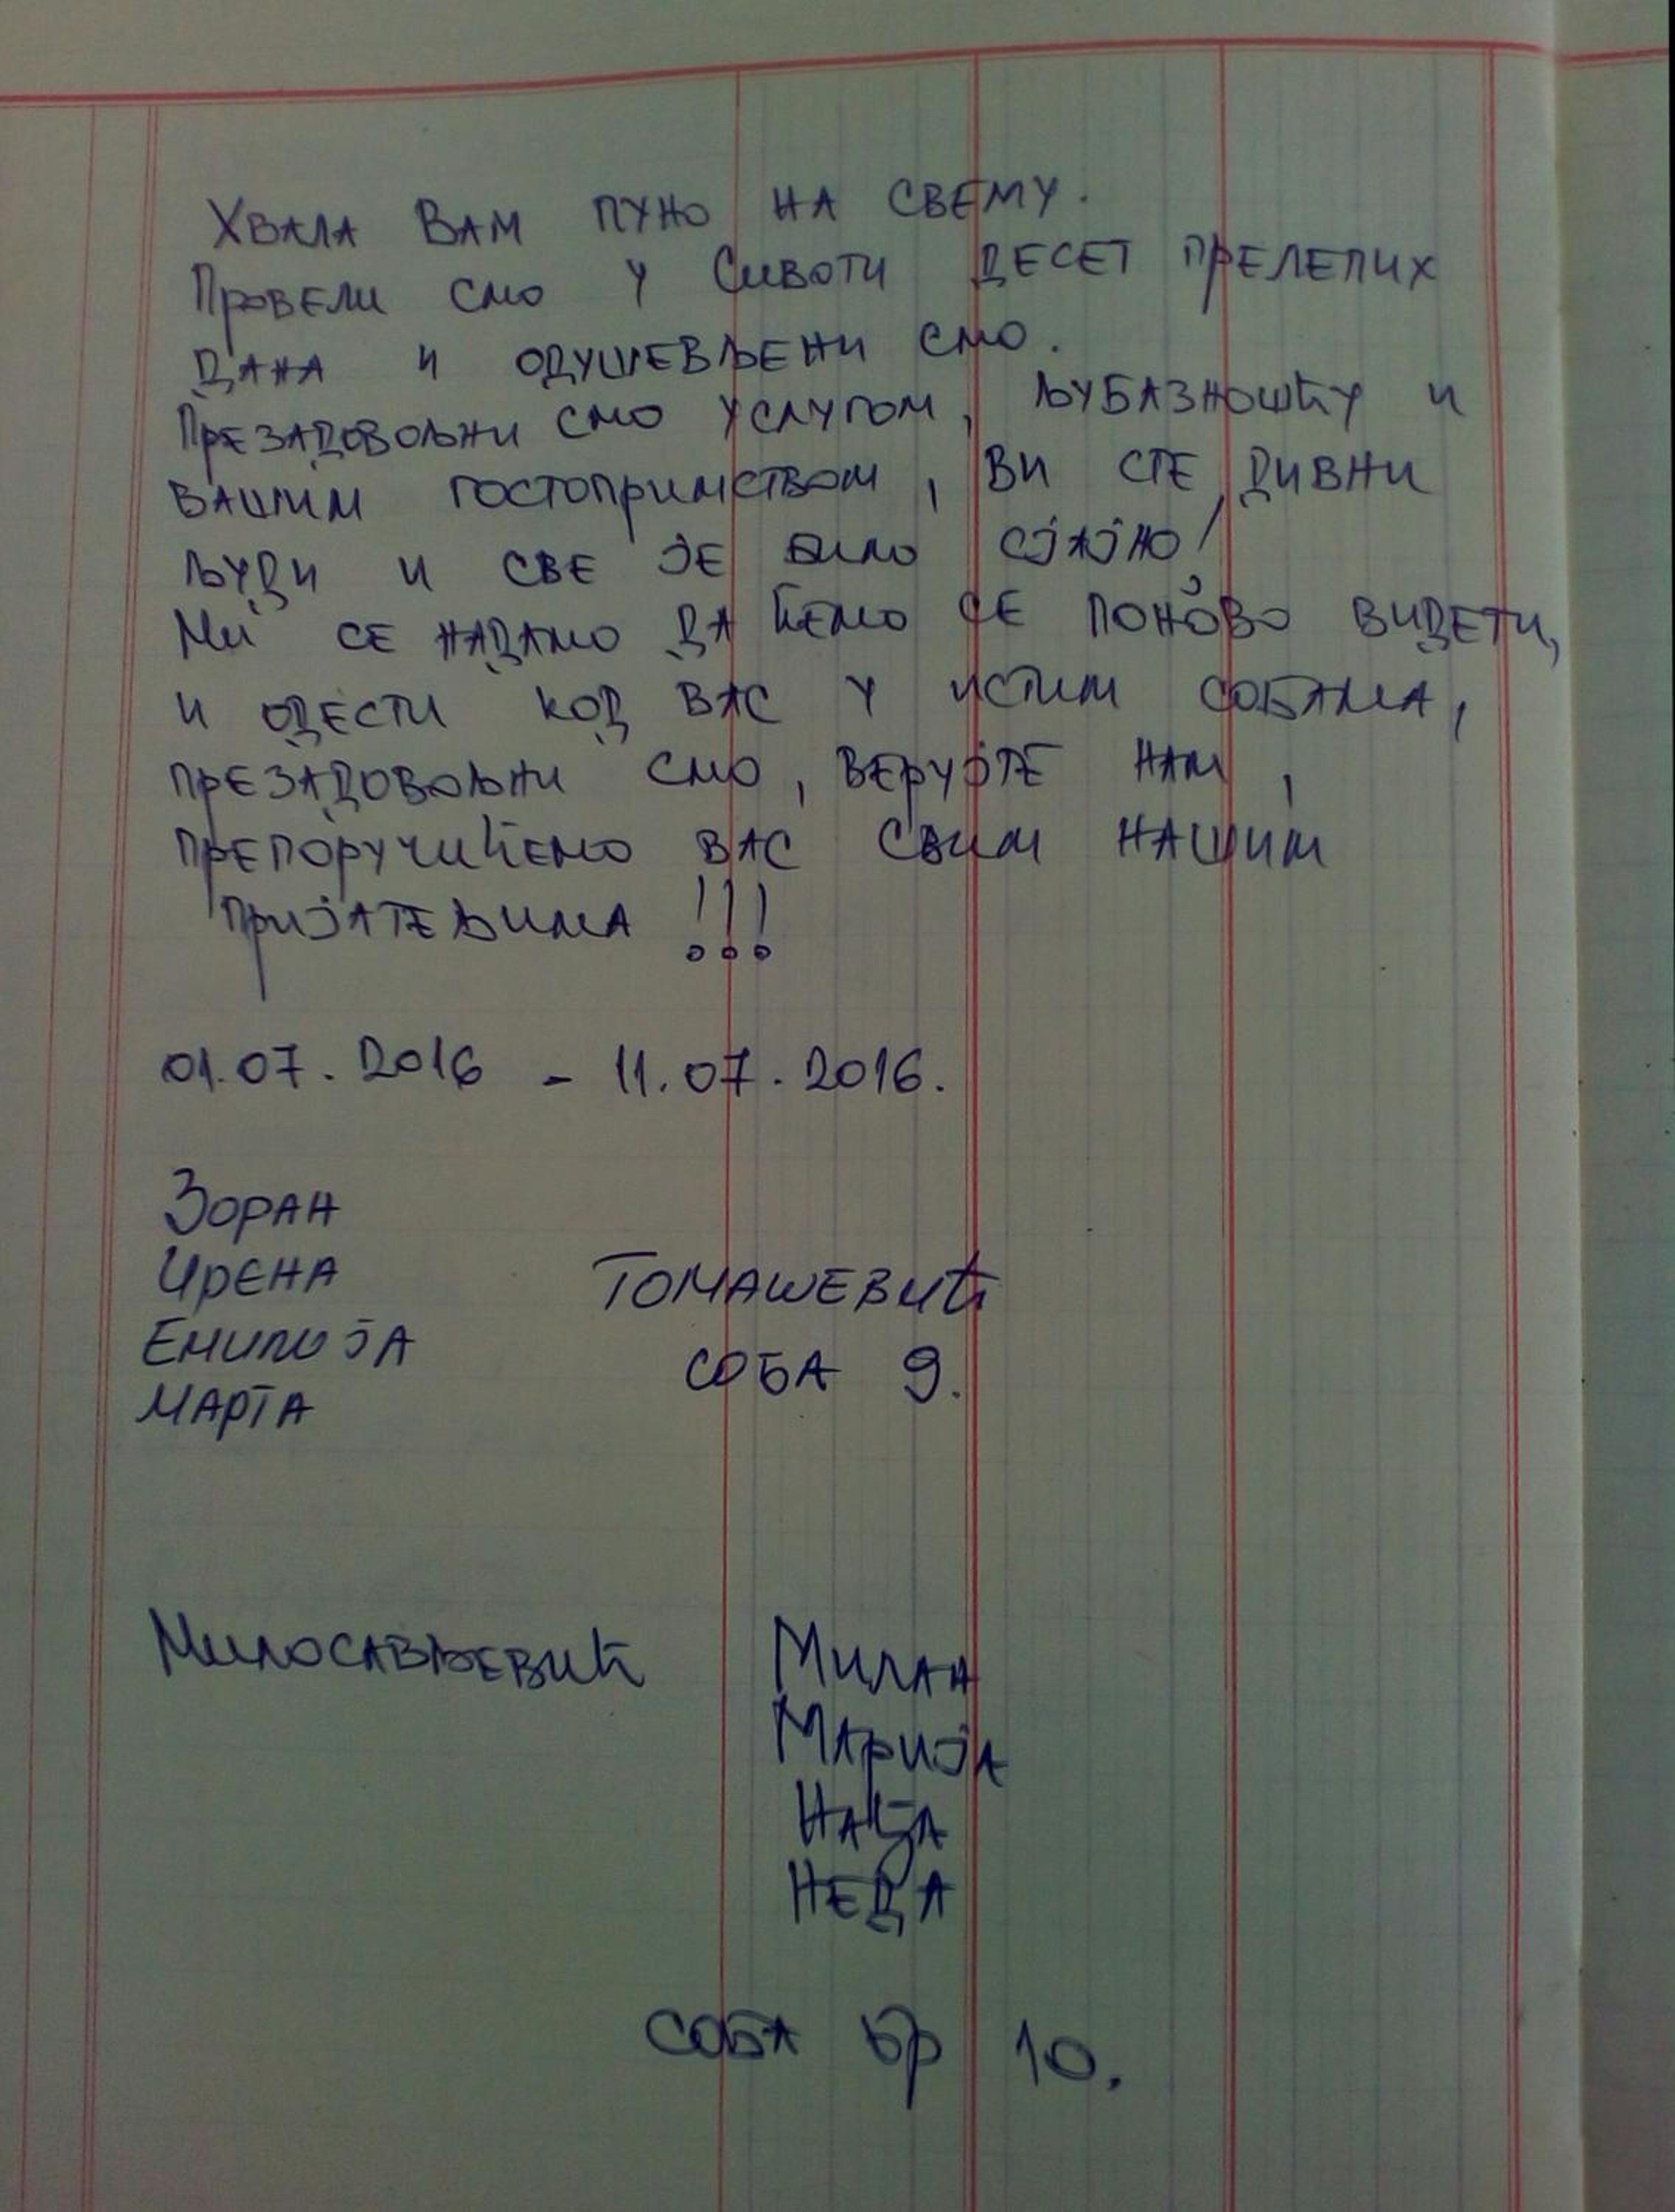 Хвала Вам пуно на свему.
Провели смо у Сивоти десет прелепих
дана и одушевљени смо.
Презадовољни смо услугом, љубазношћу и
вашим гостопримством, ви сте дивни
људи и све је било сјајно!
Ми се надамо да ћемо се поново видети,
и одести код вас у истим собама,
презадовољни смо, верујте нам,
препоручићемо вас свим нашим
пријатељима !!!
01.07.2016 - 11.07.2016.
Зоран
Ирена
Емилија
Марта
Томашевић
соба 9.
Милосављевић
Милан
Марија
Нађа
Неда
соба бр 10.